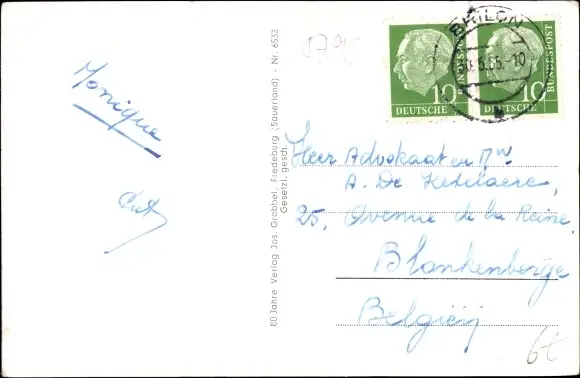 Monique
80 Jahre Verlag Jos. Grobbel, Fredeburg (Sauerland) - Nr. 6533
Gesetzl. gesch.
BRILON
.5.55.-10
10 BUNDESPOST
DEUTSCHE
10 BUNDESPOST
DEUTSCHE
Heer Advokaat en Mw
A. De Ketelaere,
25, Avenue de la Reine,
Blankenberge
België
6t